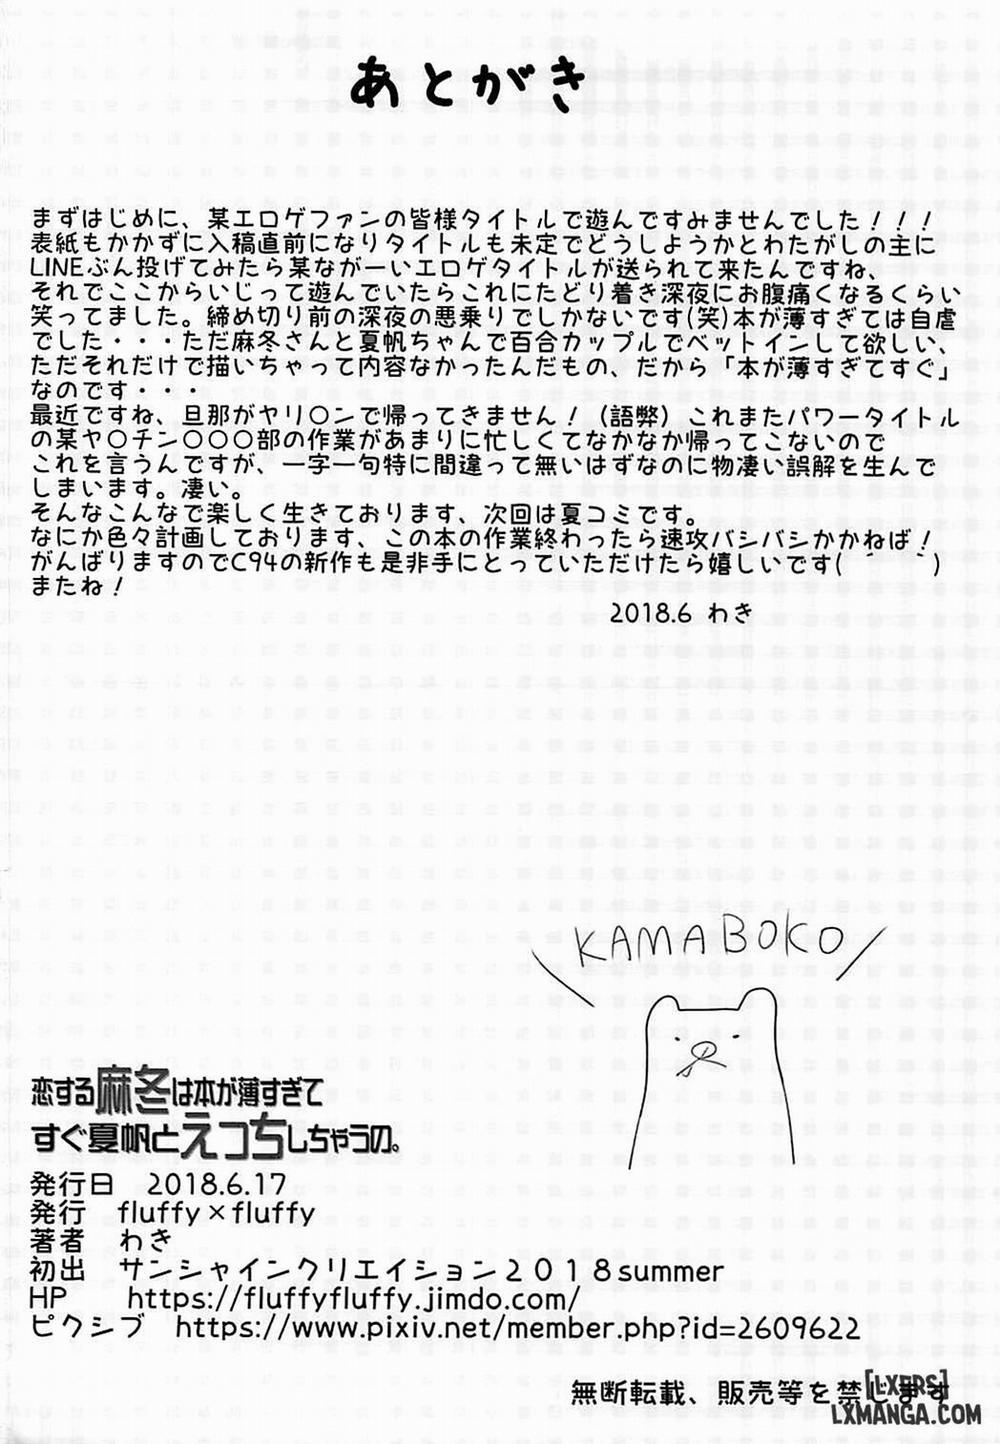 あとがき
まずはじめに、某エロゲファンの皆様タイトルで遊んですみませんでした！！！
表紙もかかずに入稿直前になりタイトルも未定でどうしようかとわたがしの主に
LINEぶん投げてみたら某ながーいエロゲタイトルが送られて来たんですね、
それでここからいじって遊んでいたらこれにたどり着き深夜にお腹痛くなるくらい
笑ってました。締め切り前の深夜の悪乗りでしかないです(笑)本が薄すぎては自虐
でした・・・ただ麻冬さんと夏帆ちゃんで百合カップルでベットインして欲しい、
ただそれだけで描いちゃって内容なかったんだもの、だから「本が薄すぎてすぐ」
なのです・・・
最近ですね、旦那がヤリ〇ンで帰ってきません！（語弊）これまたパワータイトル
の某ヤ〇チン〇〇〇部の作業があまりに忙しくてなかなか帰ってこないので
これを言うんですが、一字一句特に間違って無いはずなのに物凄い誤解を生んで
しまいます。凄い。
そんなこんなで楽しく生きております、次回は夏コミです。
なにか色々計画しております、この本の作業終わったら速攻バシバシかかねば！
がんばりますのでC94の新作も是非手にとっていただけたら嬉しいです(´ ｀)
またね！
2018.6 わき
KAMABOKO
恋する麻冬は本が薄すぎて
すぐ夏帆とえっちしちゃうの。
発行日 2018.6.17
発行 fluffy×fluffy
著者 わき
初出 サンシャインクリエイション２０１８summer
HP https://fluffyfluffy.jimdo.com/
ピクシブ https://www.pixiv.net/member.php?id=2609622
無断転載、販売等を禁じます
[LXERS]
LXMANGA.COM